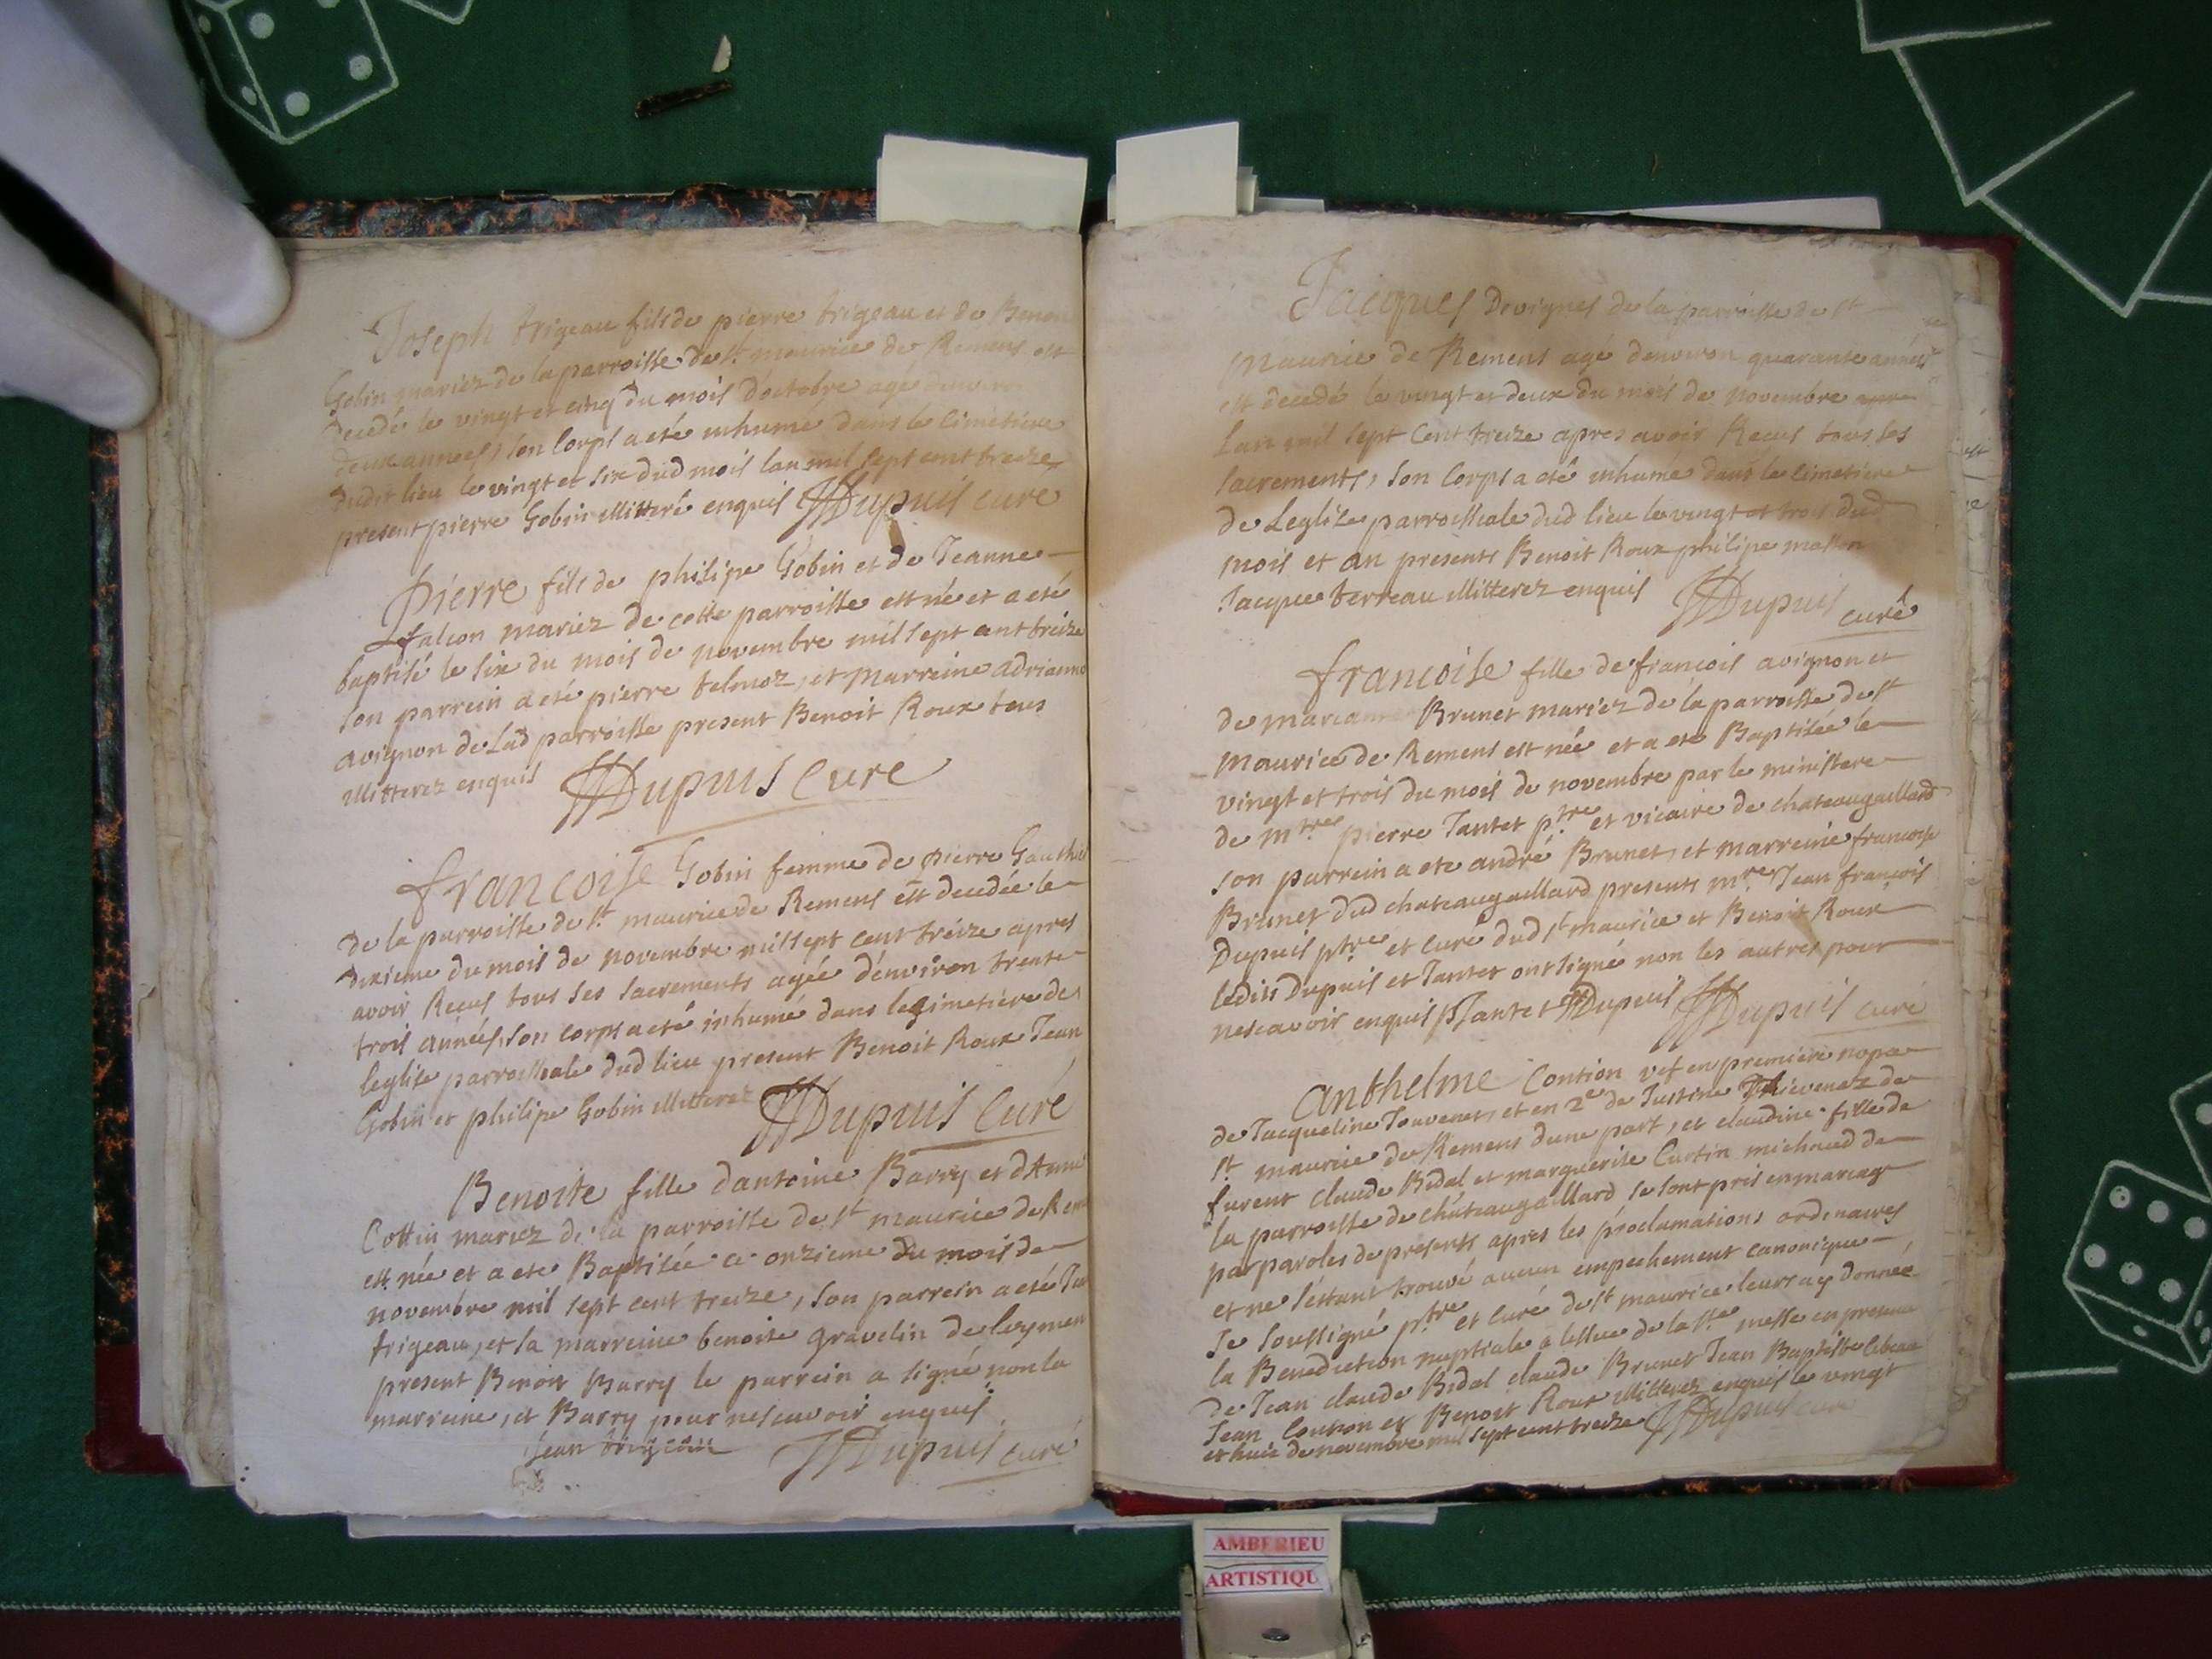 Joseph trigeau fils de pierre trigeau et de Benoi
Gobin mariez de la parroisse de st maurice de Remens est
decedé le vingt et cinq du mois d'octobre agé denviron
deux années, son corps a eté inhumé dans le cimetiere
dudit lieu le vingt et six dud mois lan mil sept cent treize
present pierre Gobin illitteré enquis JFDupuis curé
Pierre fils de philipe Gobin et de Jeanne
falcon mariez de cette parroisse est né et a eté
baptisé le six du mois de novembre mil sept cent treize
son parrein a eté pierre telmoz, et marreine adrianne
avignon de lad parroisse present Benoit Roux tous
illitterez enquis JFDupuis Curé
francoise Gobin femme de pierre Gauthie
de la parroisse de st maurice de Remens est decedée le
dixieme du mois de novembre mil sept cent treize apres
avoir Receus tous ses sacrements agée d'environ trente
trois années, son corps a eté inhumé dans le cimetiere de
leglise parroissiale dud lieu present Benoit Roux Jean
Gobin et philipe Gobin illitterez JFDupuis Curé
Benoite fille dantoine Barry et dAnne
Cottin mariez de la parroisse de st maurice de Rem
est née et a ete Baptisée ce onzieme du mois de
novembre mil sept cent treize, son parrein a eté Jea
trigeau, et sa marreine benoite gravelin de leymen
present Benoit Barry le parrein a signé non la
marreine, et Barry pour ne scavoir enquis
Jean trigeau JFDupuis curé
Jacques Devignes de la parroisse de st
maurice de Remens agé denviron quarante années
est decedé le vingt et deux du mois de novembre
lan mil sept cent treize apres avoir Receus tous ses
sacrements, son corps a eté inhumé dans le cimetiere
de Leglise parroissiale dud lieu le vingt et trois dud
mois et an presents Benoit Roux philipe masson
Jacque terreau illitterez enquis JFDupuis
curé
francoise fille de francois avignon et
de marianne Brunet mariez de la parroisse de st
maurice de Remens est née et a ete Baptisée le
vingt et trois du mois de novembre par le ministere
de mtre pierre Tantet ptre et vicaire de chateaugaillard
son parrein a ete andré Brunet, et marreine francoise
Brunet dud chateaugaillard presents mre Jean françois
Dupuis ptre et curé dud st maurice et Benoit Roux
lesdits Dupuis et Tantet ont signé non les autres pour
ne scavoir enquis PTantet JFDupuis JFDupuis curé
anthelme Contion vef en premiere nopce
de Jacqueline Jouvenet, et en 2e de Justine Thievenez de
st maurice de Remens dune part, et claudine fille de
furent claude Bidal et marguerite Curtin michaud de
la parroisse de chateaugaillard, se sont pris en mariage
par paroles de presents apres les proclamations ordinaires
et ne s'ettant trouvé aucun empechement canonique
Je soussigné ptre et curé de st maurice leurs ay donnée
la Benediction nuptiale a lissue de la ste messe en presence
de Jean claude Bidal claude Brunet Jean Baptiste
Jean Contion et Benoit Roux illitterez enquis le vingt
et huit de novembre mil sept cent treize JFDupuis curé
AMBERIEU
ARTISTIQU